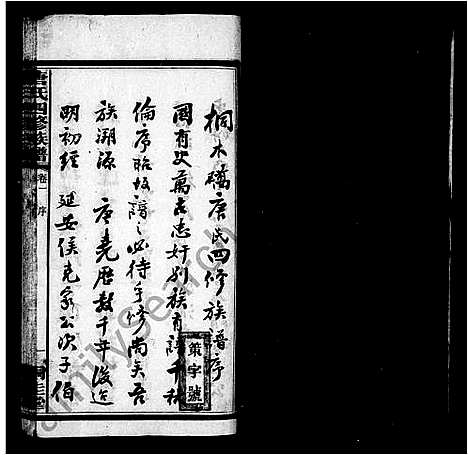 桐木礄唐氏四修族譜序
國有史萬古忠奸别族有譜千秋
倫序昭故譜之必待手修尚矣吾
族溯源唐堯歷數千年後迨
明初經延安侯克家公次子伯
唐氏四修族譜
卷一 序
一
策字號
FamilySearch